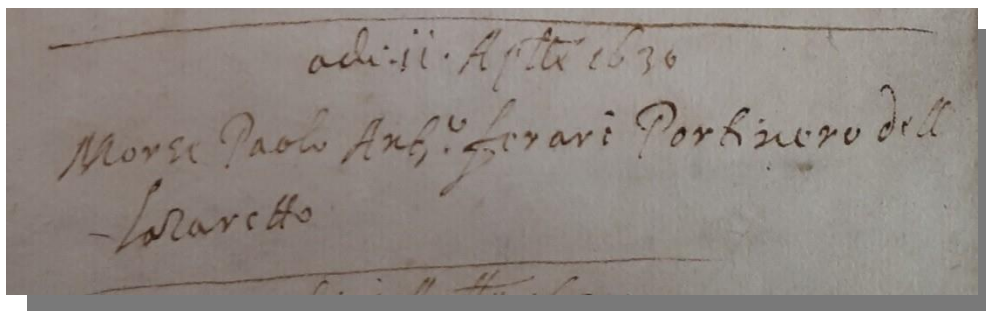 adi. ii. Aptte 1630
Morse Paolo Ant.º ferari Portinero dell
Lazaretto